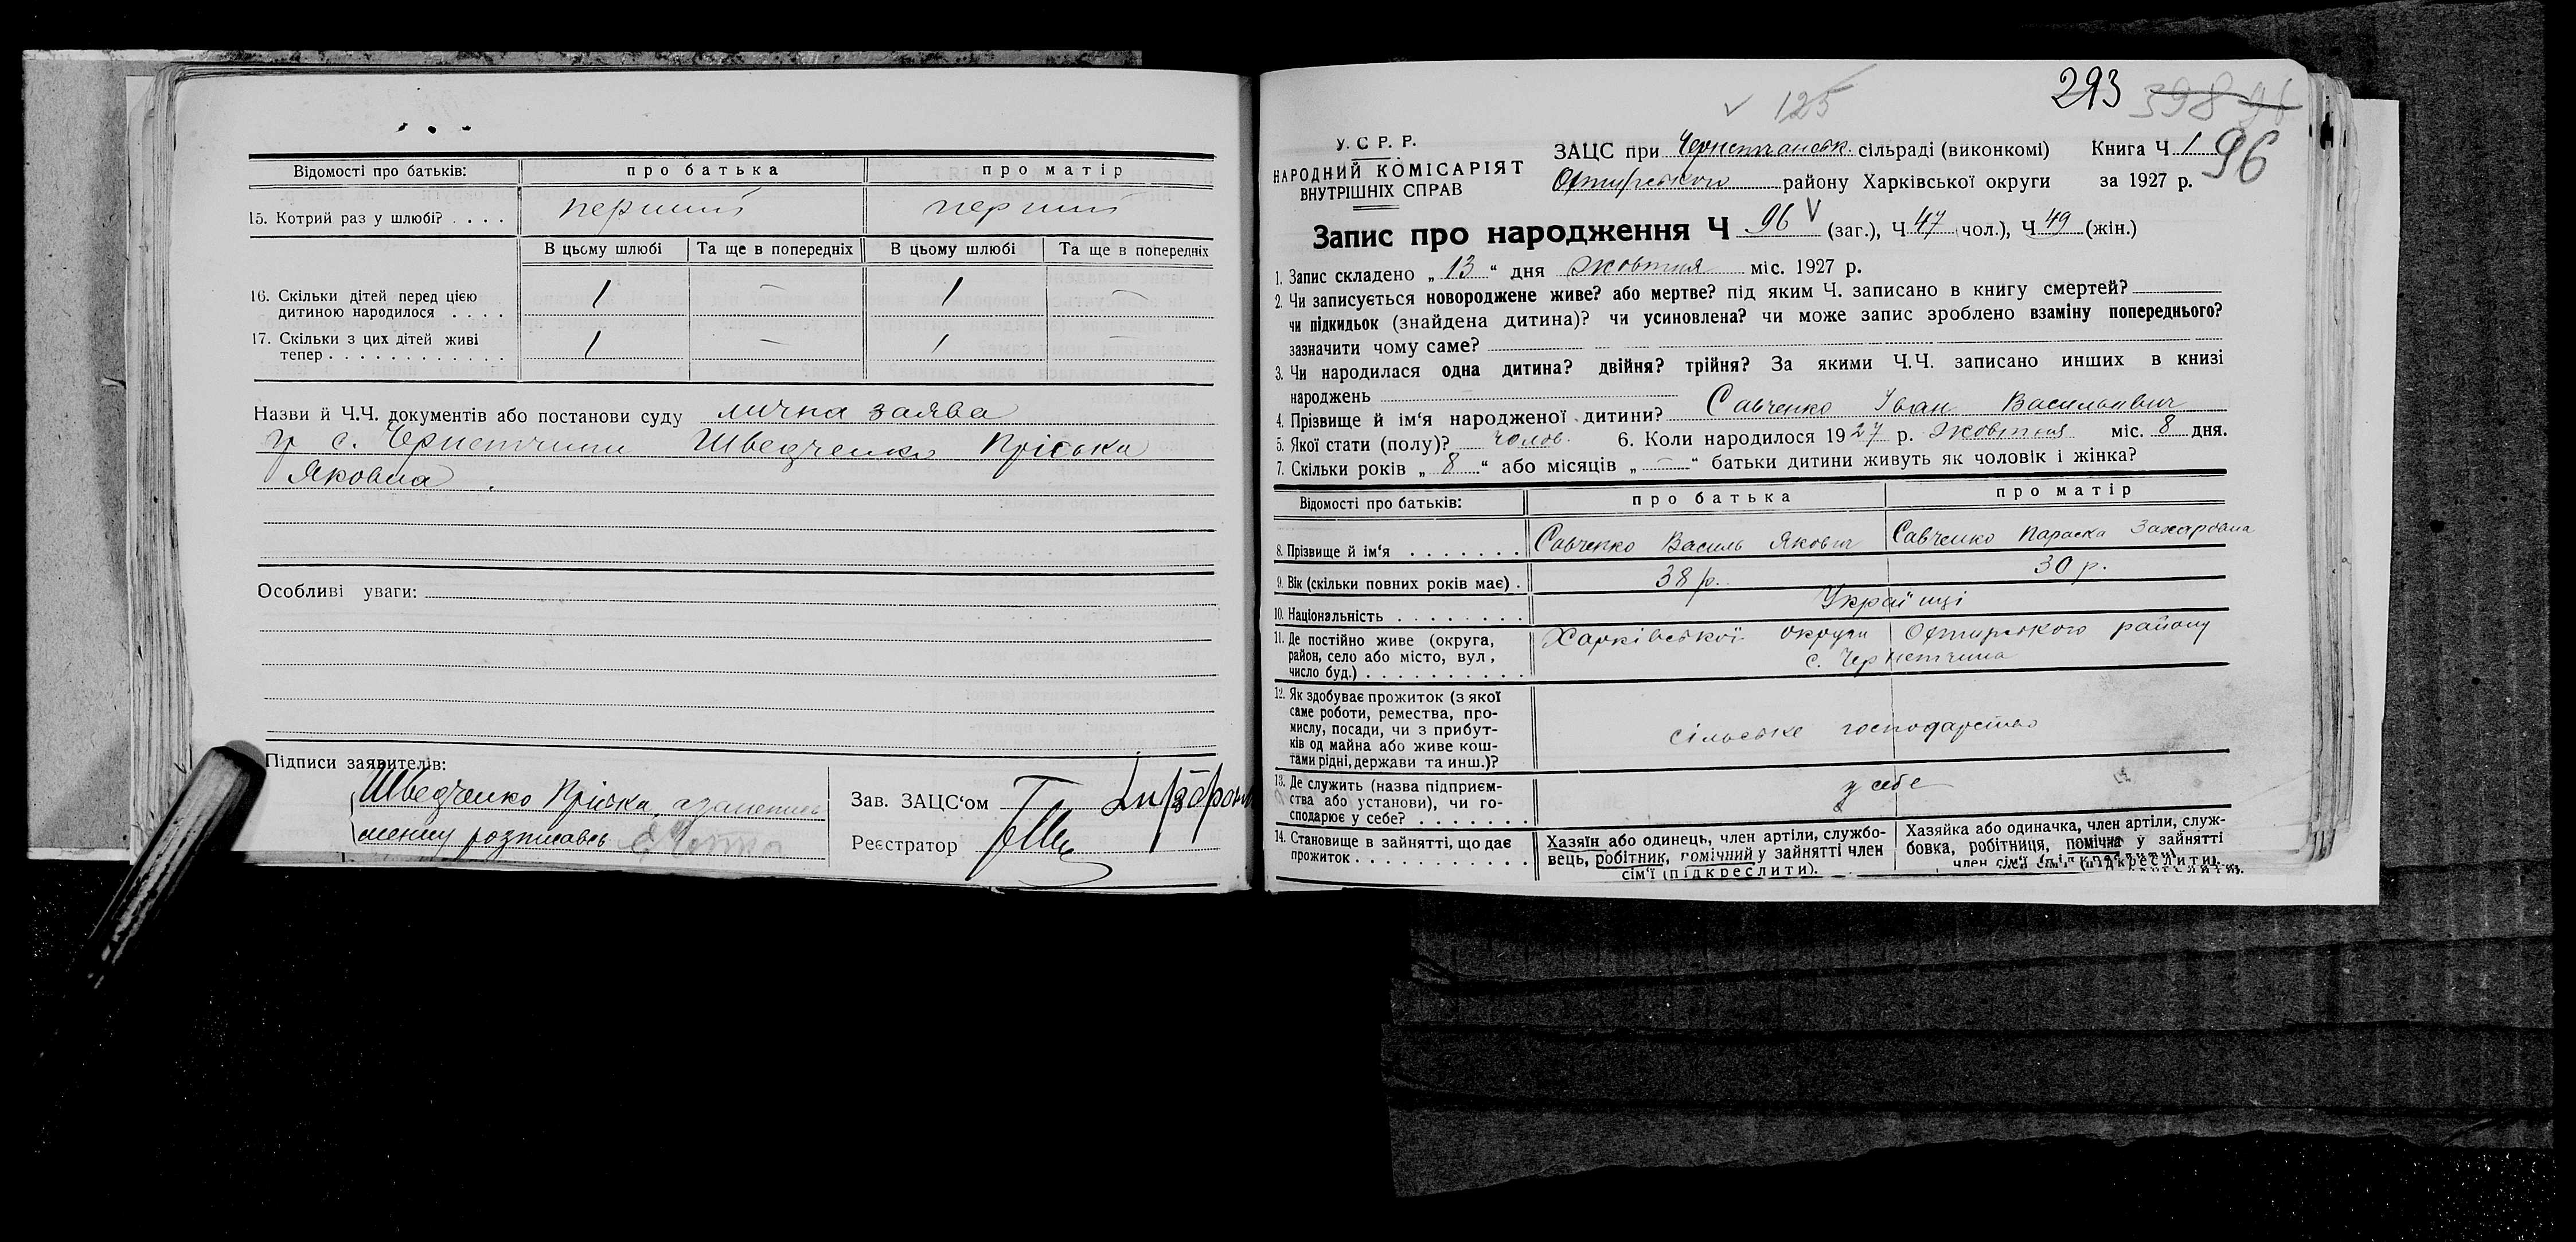 Відомості про батьків: про батька про матір
15. Котрий раз у шлюбі? . . . . перший перший
В цьому шлюбі Та ще в попередніх В цьому шлюбі Та ще в попередніх
16. Скільки дітей перед цією
дитиною народилося . . . . 1 — 1 —
17. Скільки з цих дітей живі
тепер . . . . . . . . . . . . 1 — 1 —
Назви й Ч.Ч. документів або постанови суду лична заява
гр с. Чернетчини Шведченко Пріська
Яковна.
Особливі уваги:
Підписи заявителів:
Шведченко Пріська,
розписавсь
Зав. ЗАЦС'ом
Реєстратор
125
293 398 96
96
У. С Р. Р.
НАРОДНИЙ КОМІСАРІЯТ
ВНУТРІШНІХ СПРАВ
ЗАЦС при Чернетчанськ. сільраді (виконкомі) Книга Ч 1
Охтирського району Харківської округи за 1927 р.
Запис про народження Ч 96 V (заг.), Ч 47 чол.), Ч 49 (жін.)
1. Запис складено „ 13 “ дня Жовтня міс. 1927 р.
2. Чи записується новороджене живе? або мертве? під яким Ч. записано в книгу смертей?
чи підкидьок (знайдена дитина)? чи усиновлена? чи може запис зроблено взаміну попереднього?
зазначити чому саме?
3. Чи народилася одна дитина? двійня? трійня? За якими Ч.Ч. записано инших в книзі
народжень
4. Прізвище й ім'я народженої дитини? Савченко Іван Васильович
5. Якої стати (полу)? чолов. 6. Коли народилося 1927 р. Жовтня міс. 8 дня.
7. Скільки років „ 8 “ або місяців „ — “ батьки дитини живуть як чоловік і жінка?
Відомості про батьків: про батька про матір
8. Прізвище й ім'я . . . . . . . Савченко Василь Якович Савченко Параска Захаровна
9. Вік (скільки повних років має) . 38 р. 30 р.
10. Національність . . . . . . . . Українці
11. Де постійно живе (округа, Харківської округи Охтирського району
район, село або місто, вул, с. Чернетчина
число буд.) . . . . . . . . . .
12. Як здобуває прожиток (з якої
саме роботи, ремества, про-
мислу, посади, чи з прибут- сільське господарство
ків од майна або живе кош-
тами рідні, держави та инш.)?
13. Де служить (назва підприєм- у себе
ства або установи), чи го-
сподарює у себе? . . . . . . .
14. Становище в зайнятті, що дає
прожиток . . . . . . . . . . .
Хазяїн або одинець, член артіли, службо-
вець, робітник, помічний у зайнятті член
сім'ї (підкреслити).
Хазяйка або одиначка, член артіли, служ-
бовка, робітниця, помічна у зайнятті
член сім'ї (підкреслити).